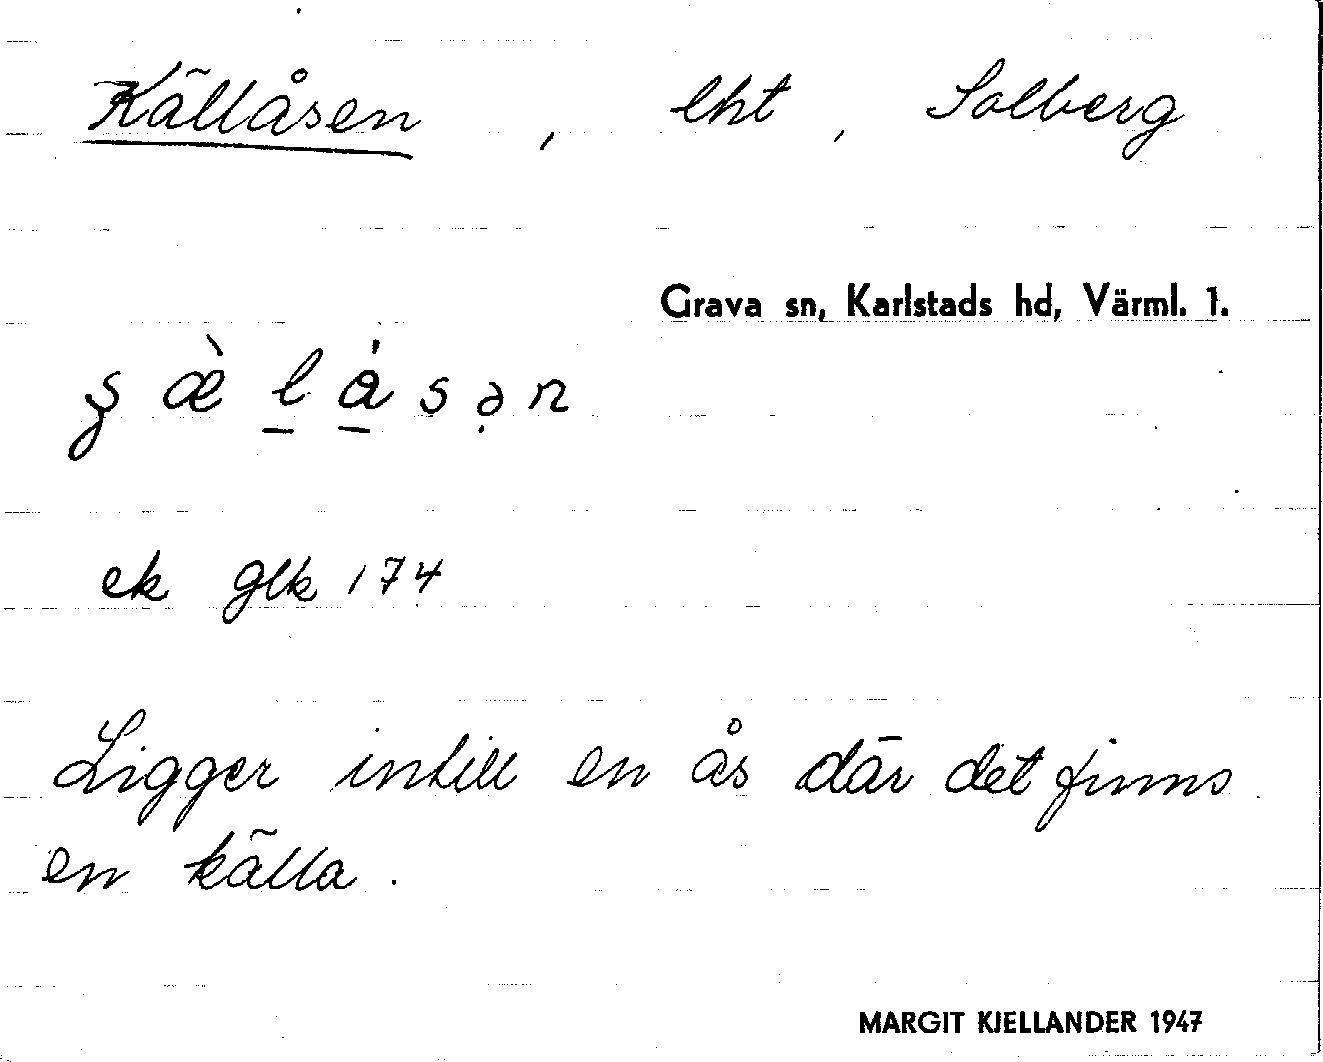 Källåsen, lht, Solberg
Grava sn, Karlstads hd, Värml. 1.
ek glk 174
Ligger intill en ås där det finns
en källa.
MARGIT KJELLANDER 1947